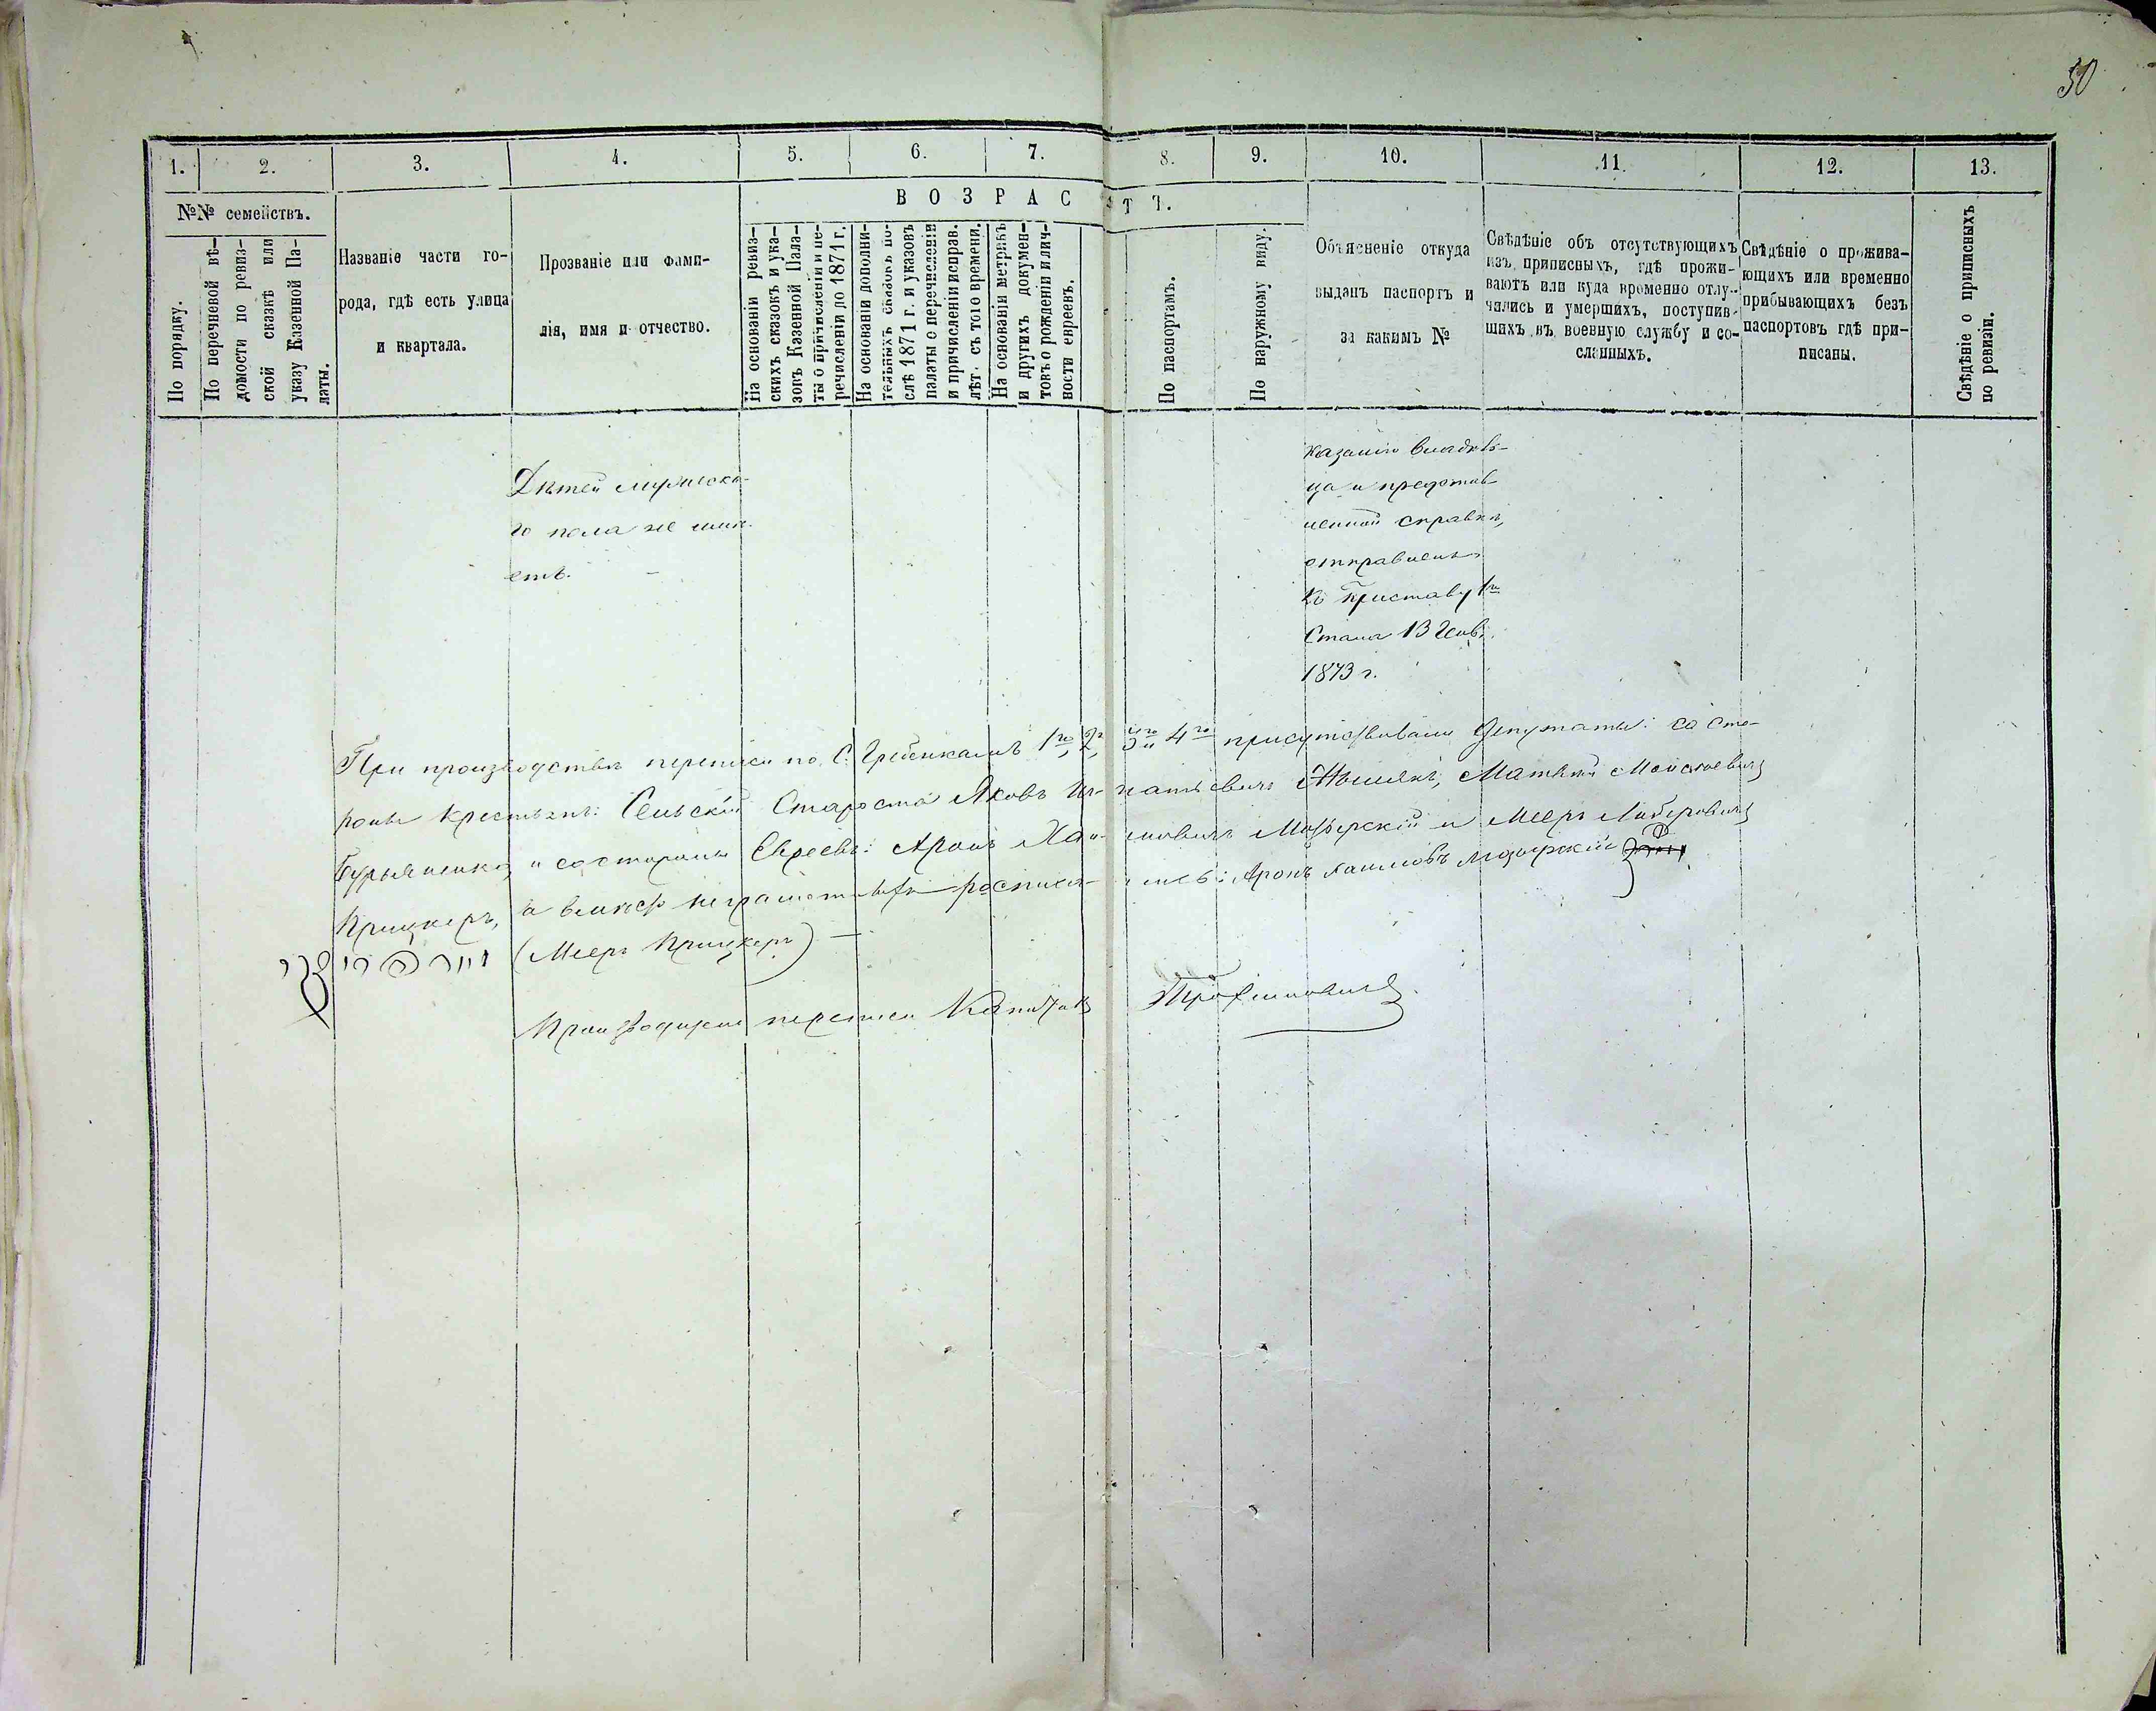 50
1. 2. 3. 4. 5. 6. 7. 8. 9. 10. 11. 12. 13.
№№ семействъ.
По порядку.
По перечневой вѣ-
домости по ревиз-
ской сказкѣ или
указу Казенной Па-
латы.
Названіе части го-
рода, гдѣ есть улица
и квартала.
Прозваніе или фами-
лія, имя и отчество.
ВОЗРАСТЪ.
На основаніи ревиз-
скихъ сказокъ и ука-
зовъ Казенной Пала-
ты о причисленіи и пе-
речисленіи до 1871 г.
На основаніи дополни-
тельныхъ сказокъ по-
слѣ 1871 г. и указовъ
палаты о перечисленіи
и причисленіи исправ.
лѣт. съ того времени.
На основаніи метрикъ
и другихъ докумен-
товъ о рожденіи и лич-
ности евреевъ.
По паспортамъ.
По наружному виду.
Объясненіе откуда
выданъ паспортъ и
за какимъ №
Свѣдѣніе объ отсутствующихъ
изъ приписныхъ, гдѣ прожи-
ваютъ или куда временно отлу-
чились и умершихъ, поступив-
шихъ въ военную службу и со-
сланныхъ.
Свѣдѣніе о прожива-
ющихъ или временно
прибывающихъ безъ
паспортовъ гдѣ при-
писаны.
Свѣдѣніе о приписныхъ
по ревизіи.
Дѣтей мужеска-
го пола не име-
етъ.
казанію владѣль-
ца и представ
ленной справки,
отправленъ
къ Приставу 1го
Стана 13 Генв.
1873 г.
При производствѣ переписи по С. Гребенкамъ 1го, 2го, 3го и 4го присутствовали Депутаты: со сто-
роны Крестьянъ: Сельскій Староста Яковъ Игнатьевичъ, Матвѣй Моисеевичъ
и со стороны Евреевъ: Аронъ Хаимовичъ и Мееръ Либеровичъ
Прицкеръ, а вмѣсто неграмотныхъ росписались: Аронъ Хаимовъ
(Мееръ Прицкеръ)
Производящій перепись Капитанъ Трофимовичъ